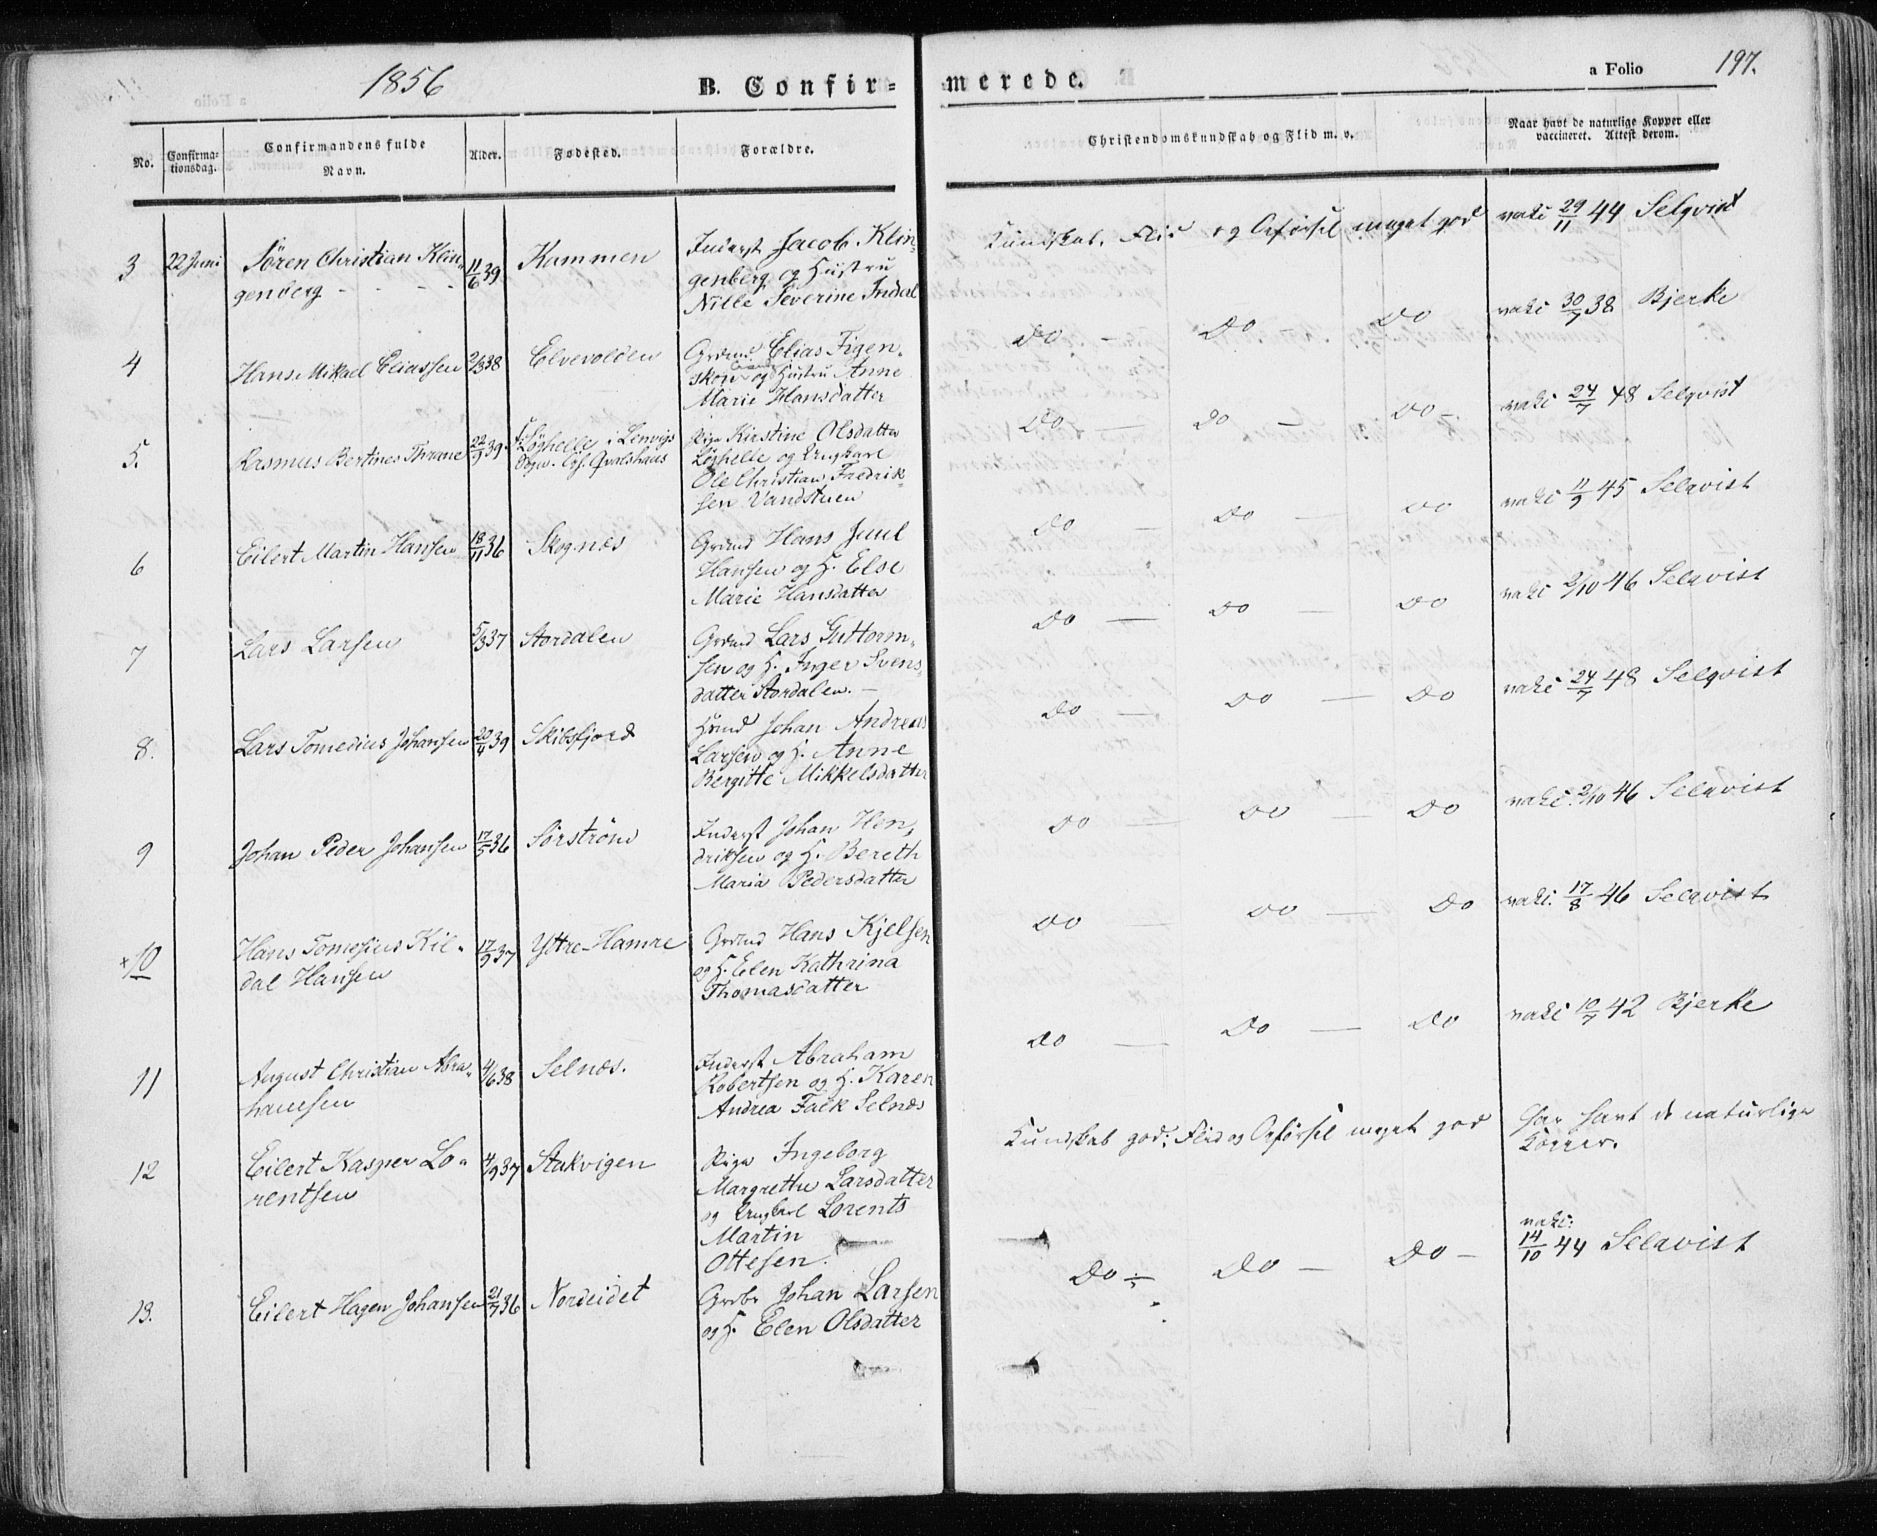 1856
B. Confir-
merede.
a Folio
197.
No.
Confirma-
tionsdag.
Confirmandens fulde
Navn.
Alder.
Fødested.
Forældre.
Christendomskundskab og Flid m. v.
Naar havt de naturlige Kopper eller
vaccineret. Attest derom.
3 22 Juni Søren Christian Klin-
genberg - - - -
11/6 39
Kammen
Inderst Jacob Klin-
genberg og Hustru
Nille Severine Indal
Kundskab, Flid og Opførsel meget god
vaki 29/11 44 Selqvist
4
Hans Mikael Eliassen
2/3 38
Elvevolden
Grdmd Elias Figen-
skou og Hustru Anne
Marie Hansdatter
Do - Do - Do
vaki 30/7 38 Bjerke
5.
Rasmus Bertines Thrane
22/9 39
Løghelle i Lenvigs
Sogn.
Pige Kirstine Olsdatter
Løghelle og Ungkarl
Ole Christian Fredrik-
sen Vandstuen
Do - Do - Do -
vaki 24/7 48 Selqvist
6
Eilert Martin Hansen
18/11 36
Skognæs
Grdmd Hans Juul
Hansen og H. Else
Marie Hansdatter
Do - Do - Do
vaki 11/9 45 Selqvist
7
Lars Larsen
5/3 37
Stordalen
Grdmd Lars Guttorm-
sen og H. Inger Svens-
datter Stordalen. -
Do - Do - Do
vaki 2/10 46 Selqvist
8.
Lars Tomedius Johansen
20/4 39
Skibsfjord
Hsmd Johan Andreas
Larsen og H. Anne
Bergitte Mikkelsdatter
Do - Do - Do
vaki 24/7 48 Selqvist
9
Johan Peder Johansen
17/5 36
Sørstrøm
Inderst Johan Hen-
driksen og H. Bereth
Maria Pedersdatter
Do - Do - Do
vaki. 2/10 46 Selqvist
x 10
Hans Tomesius Kil-
dal Hansen
17/9 37
Yttre Hamre
Grdmd Hans Kjelsen
og H. Elen Kathrina
Thomasdatter
Do - Do - Do
vaki. 17/8 46 Selqvist
11
August Christian Abra-
hamsen
4/6 38
Selnæs.
Inderst Abraham
Robertsen og H. Karen
Andrea Falk Selnæs
Do - Do - Do
vaki 10/7 42 Bjerke
12
Eilert Kasper Lo-
rentsen
4/9 37
Stakvigen
Pige Ingeborg
Margrethe Larsdatter
og Ungkarl Lorents
Martin
Ottesen.
Kundskab god; Flid og Opførsel meget god
har havt de naturlige
Kopper.
13.
Eilert Hagen Johansen
21/7 36
Nordeidet
Grdbr Johan Larsen
og H. Elen Olsdatter
Do - Do - Do -
vaki:
14/10 44 Selqvist